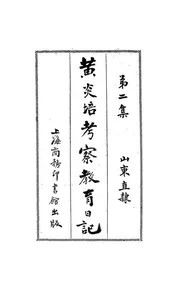 第二集
山東直隸
黃炎培考察教育日記
上海商務印書館出版